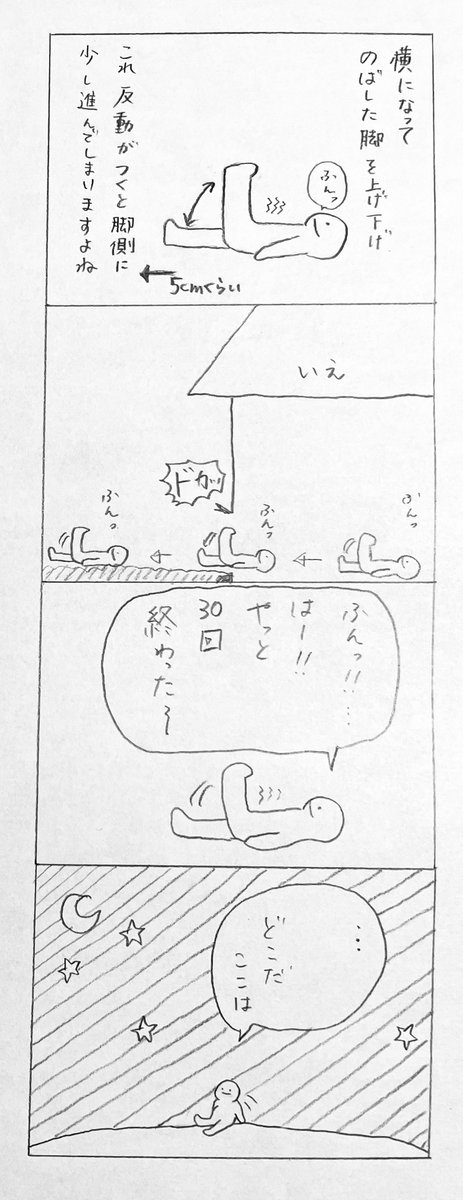 横になって
のばした脚を上げ下げ
ふんっ
これ反動がつくと脚側に
少し進んでしまいますよね
5cmくらい
いえ
ドガッ
ふんっ
ふんっ
ふんっ
ふんっ!!…
はー!!
やっと
30回
終わった〜
…
どこだ
ここは